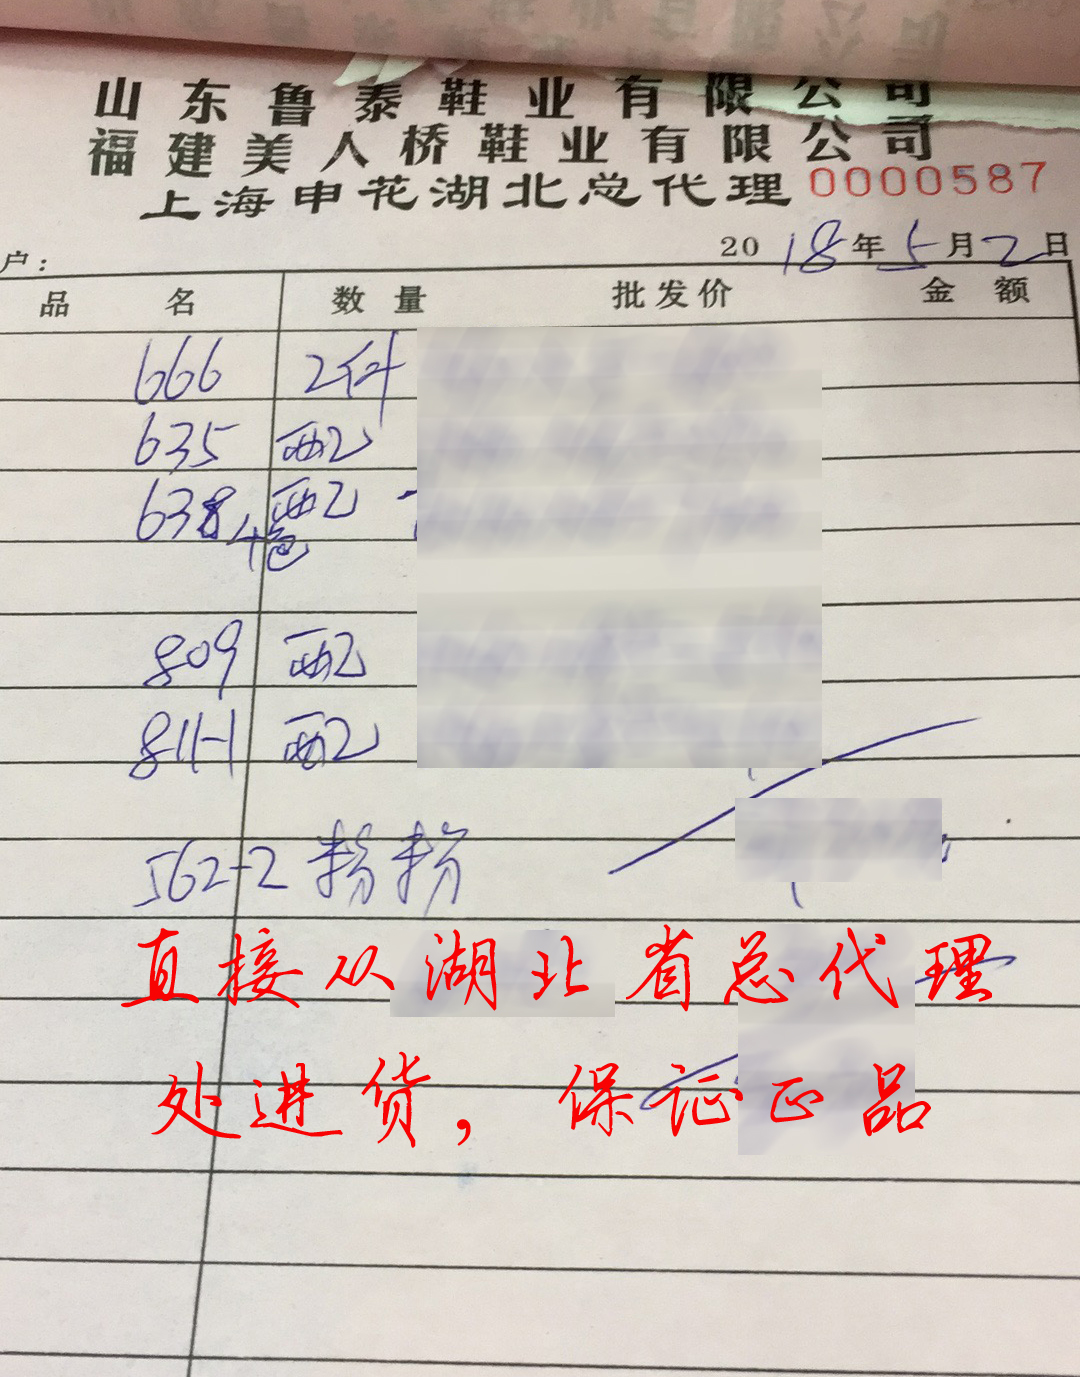 山东鲁泰鞋业有限公司
福建美人桥鞋业有限公司
上海申花湖北总代理 0000587
户: 2018年5月2日
品名 数量 批发价 金额
666 2件
635 配
638 配
4色
809 配
811-1 配
562-2
直接从湖北省总代理
处进货，保证正品